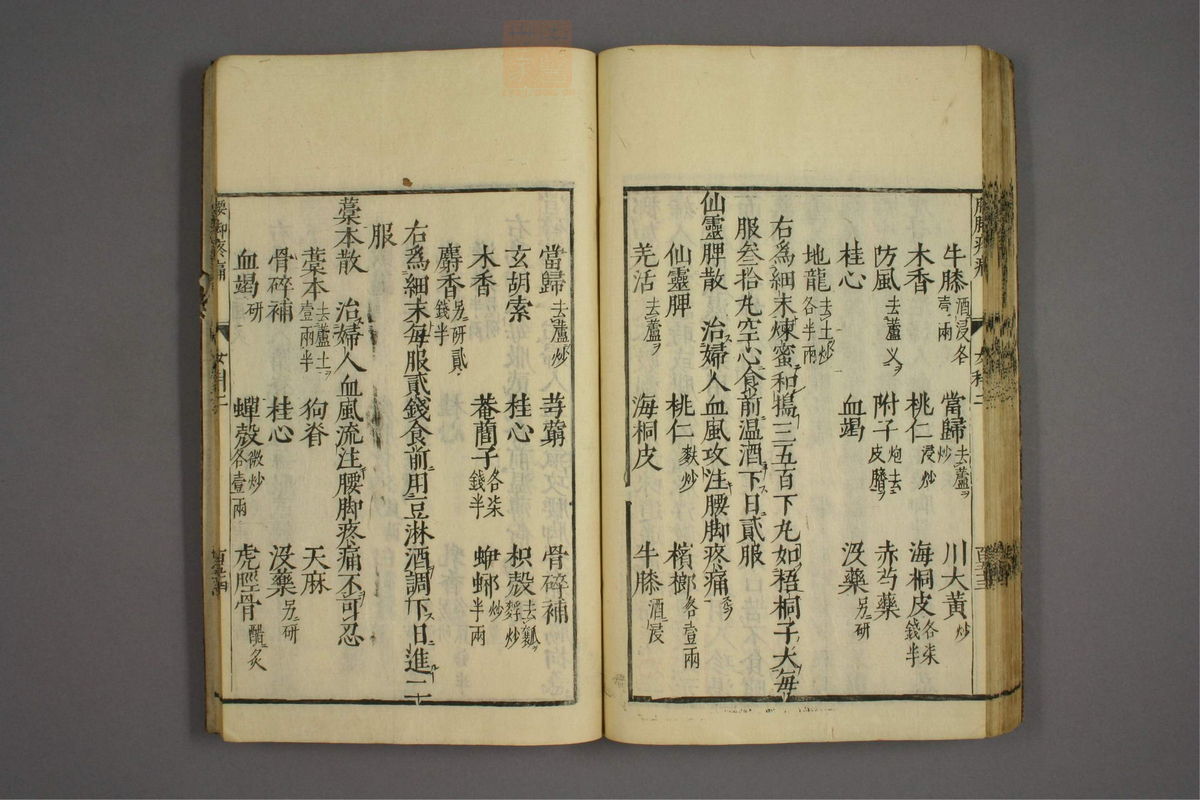 牛膝酒浸各壹兩 當歸去蘆炒 川大黃炒
木香 桃仁浸炒 海桐皮各柒錢半
防風去蘆叉 附子炮去皮臍 赤芍藥
桂心 血竭 沒藥另研
地龍去土炒各半兩
右爲細末煉蜜和搗三五百下丸如梧桐子大每
服叁拾丸空心食前温酒下日貳服
仙靈脾散 治婦人血風攻注腰脚疼痛
仙靈脾 桃仁麩炒 檳榔各壹兩
羌活去蘆 海桐皮 牛膝酒浸
當歸去蘆炒 芎藭 骨碎補
玄胡索 桂心 枳殼去瓤麩炒
木香 菴䕡子各柒錢半 半兩
麝香另研貳錢半
右爲細末每服貳錢食前用豆淋酒調下日進二
服
藁本散 治婦人血風流注腰脚疼痛不可忍
藁本去蘆土壹兩半 狗脊 天麻
骨碎補 桂心 沒藥另研
血竭研 蟬殼微炒各壹兩 虎脛骨醋炙
腰脚疼痛 女科二